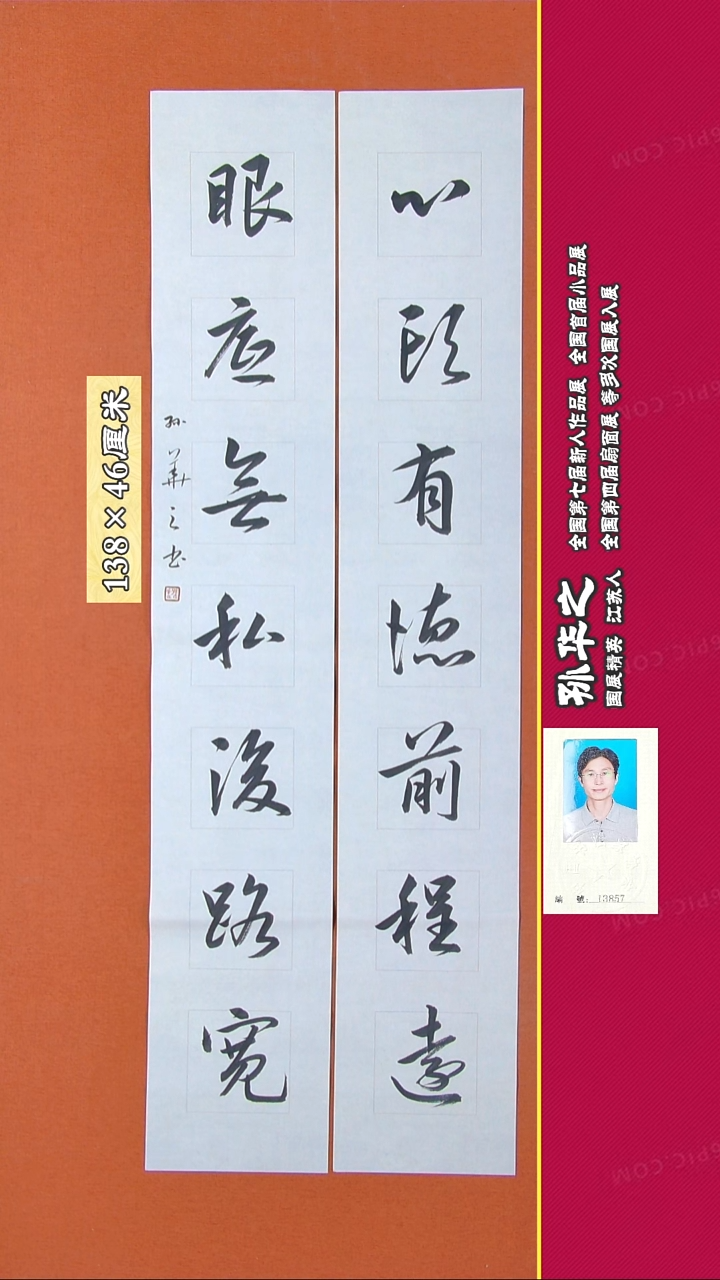 心頭有德前程遠
眼底無私後路寬
孙華之书
138×46厘米
孙华之
國展精英 江苏人
全國第七届新人作品展 全國首届小品展
全國第四届扇面展 等多次國展入展
編 號: 13857